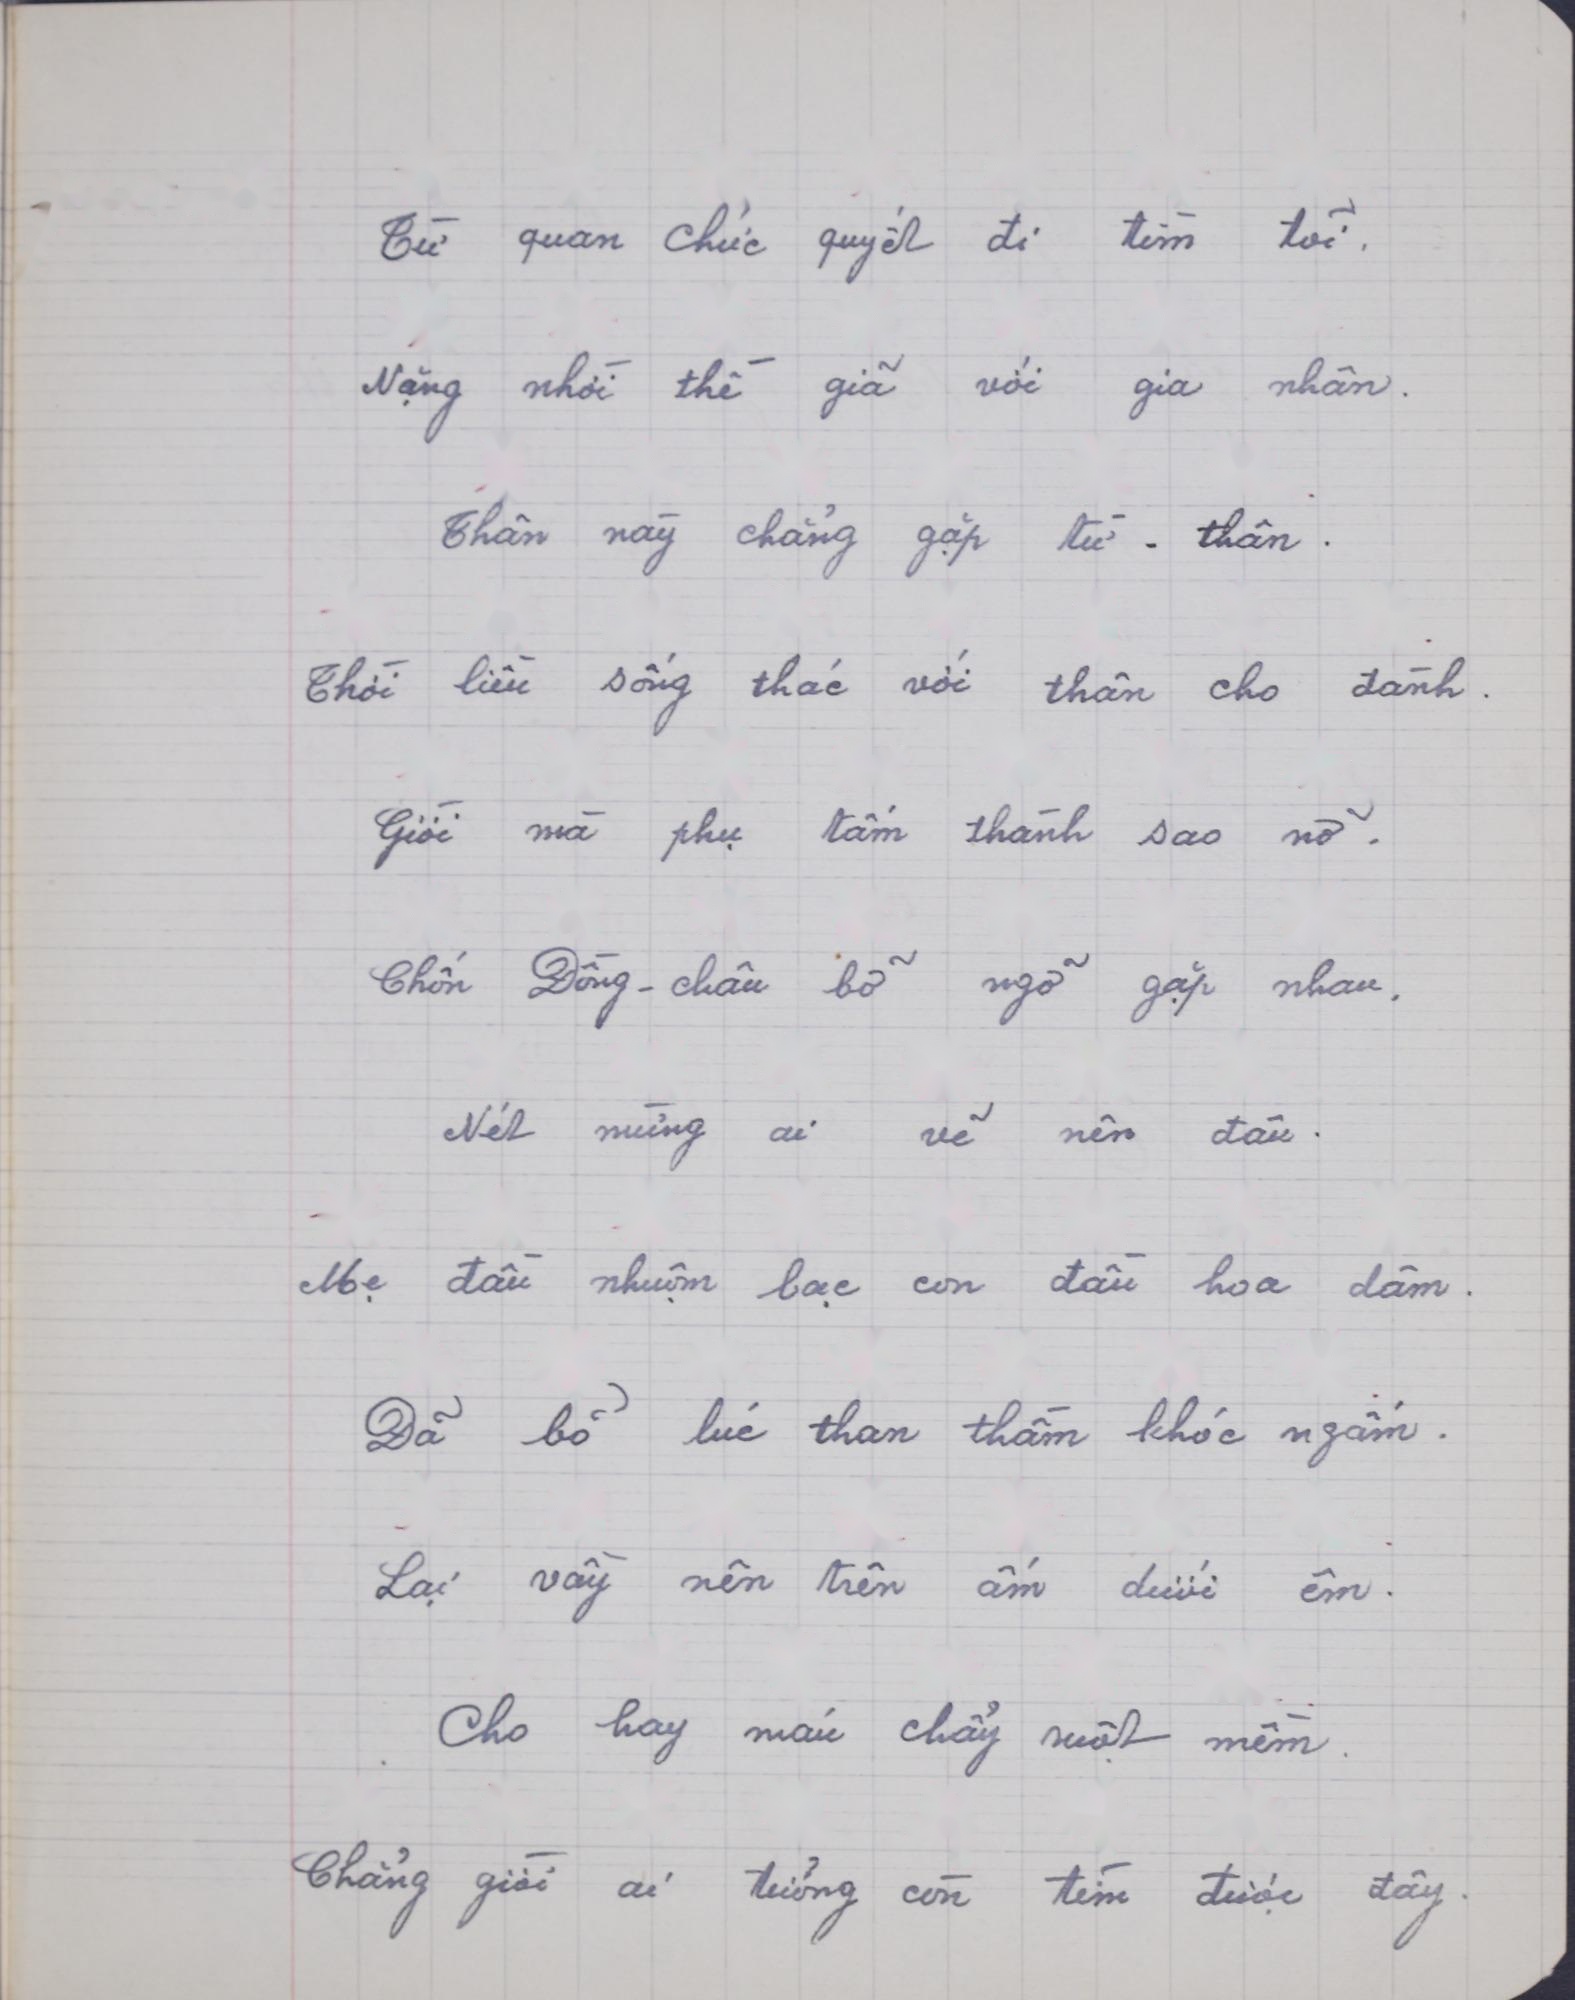 Từ quan chức quyết đi tìm tõi.
Nặng nhời thề giã với gia nhân.
Thân này chẳng gặp từ - thân.
Thời liều sống thác với thân cho đành.
Giời mà phụ tấm thành sao nỡ.
Chốn Đồng - châu bỡ ngỡ gặp nhau.
Nét mừng ai vẽ nên đâu.
Mẹ đầu nhuộm bạc con đầu hoa dâm.
Đã bõ lúc than thầm khóc ngấm.
Lại vầy nên trên ấm dưới êm.
Cho hay máu chẩy ruột mềm.
Chẳng giời ai tưởng còn tìm được đây.